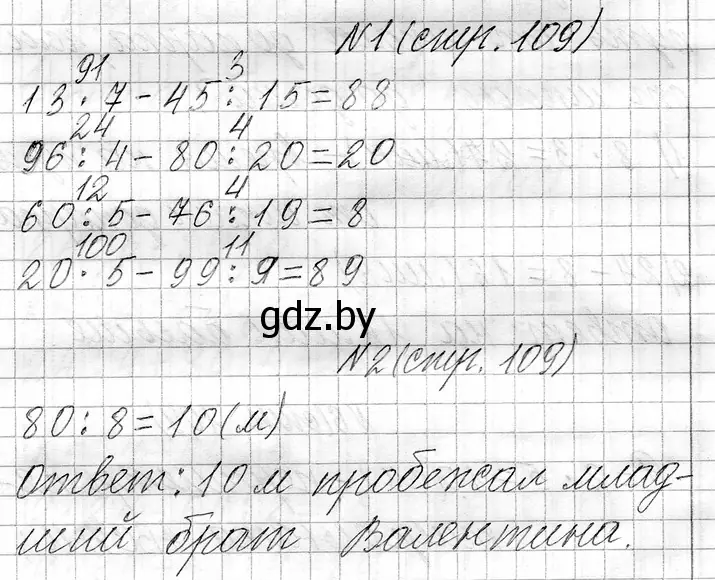 №1 (стр. 109)
91 3
13 · 7 - 45 : 15 = 88
24 4
96 : 4 - 80 : 20 = 20
12 4
60 : 5 - 76 : 19 = 8
100 11
20 · 5 - 99 : 9 = 89
gdz.by
№2 (стр. 109)
80 : 8 = 10 (м)
Ответ: 10 м пробежал млад-
ший брат Валентина.